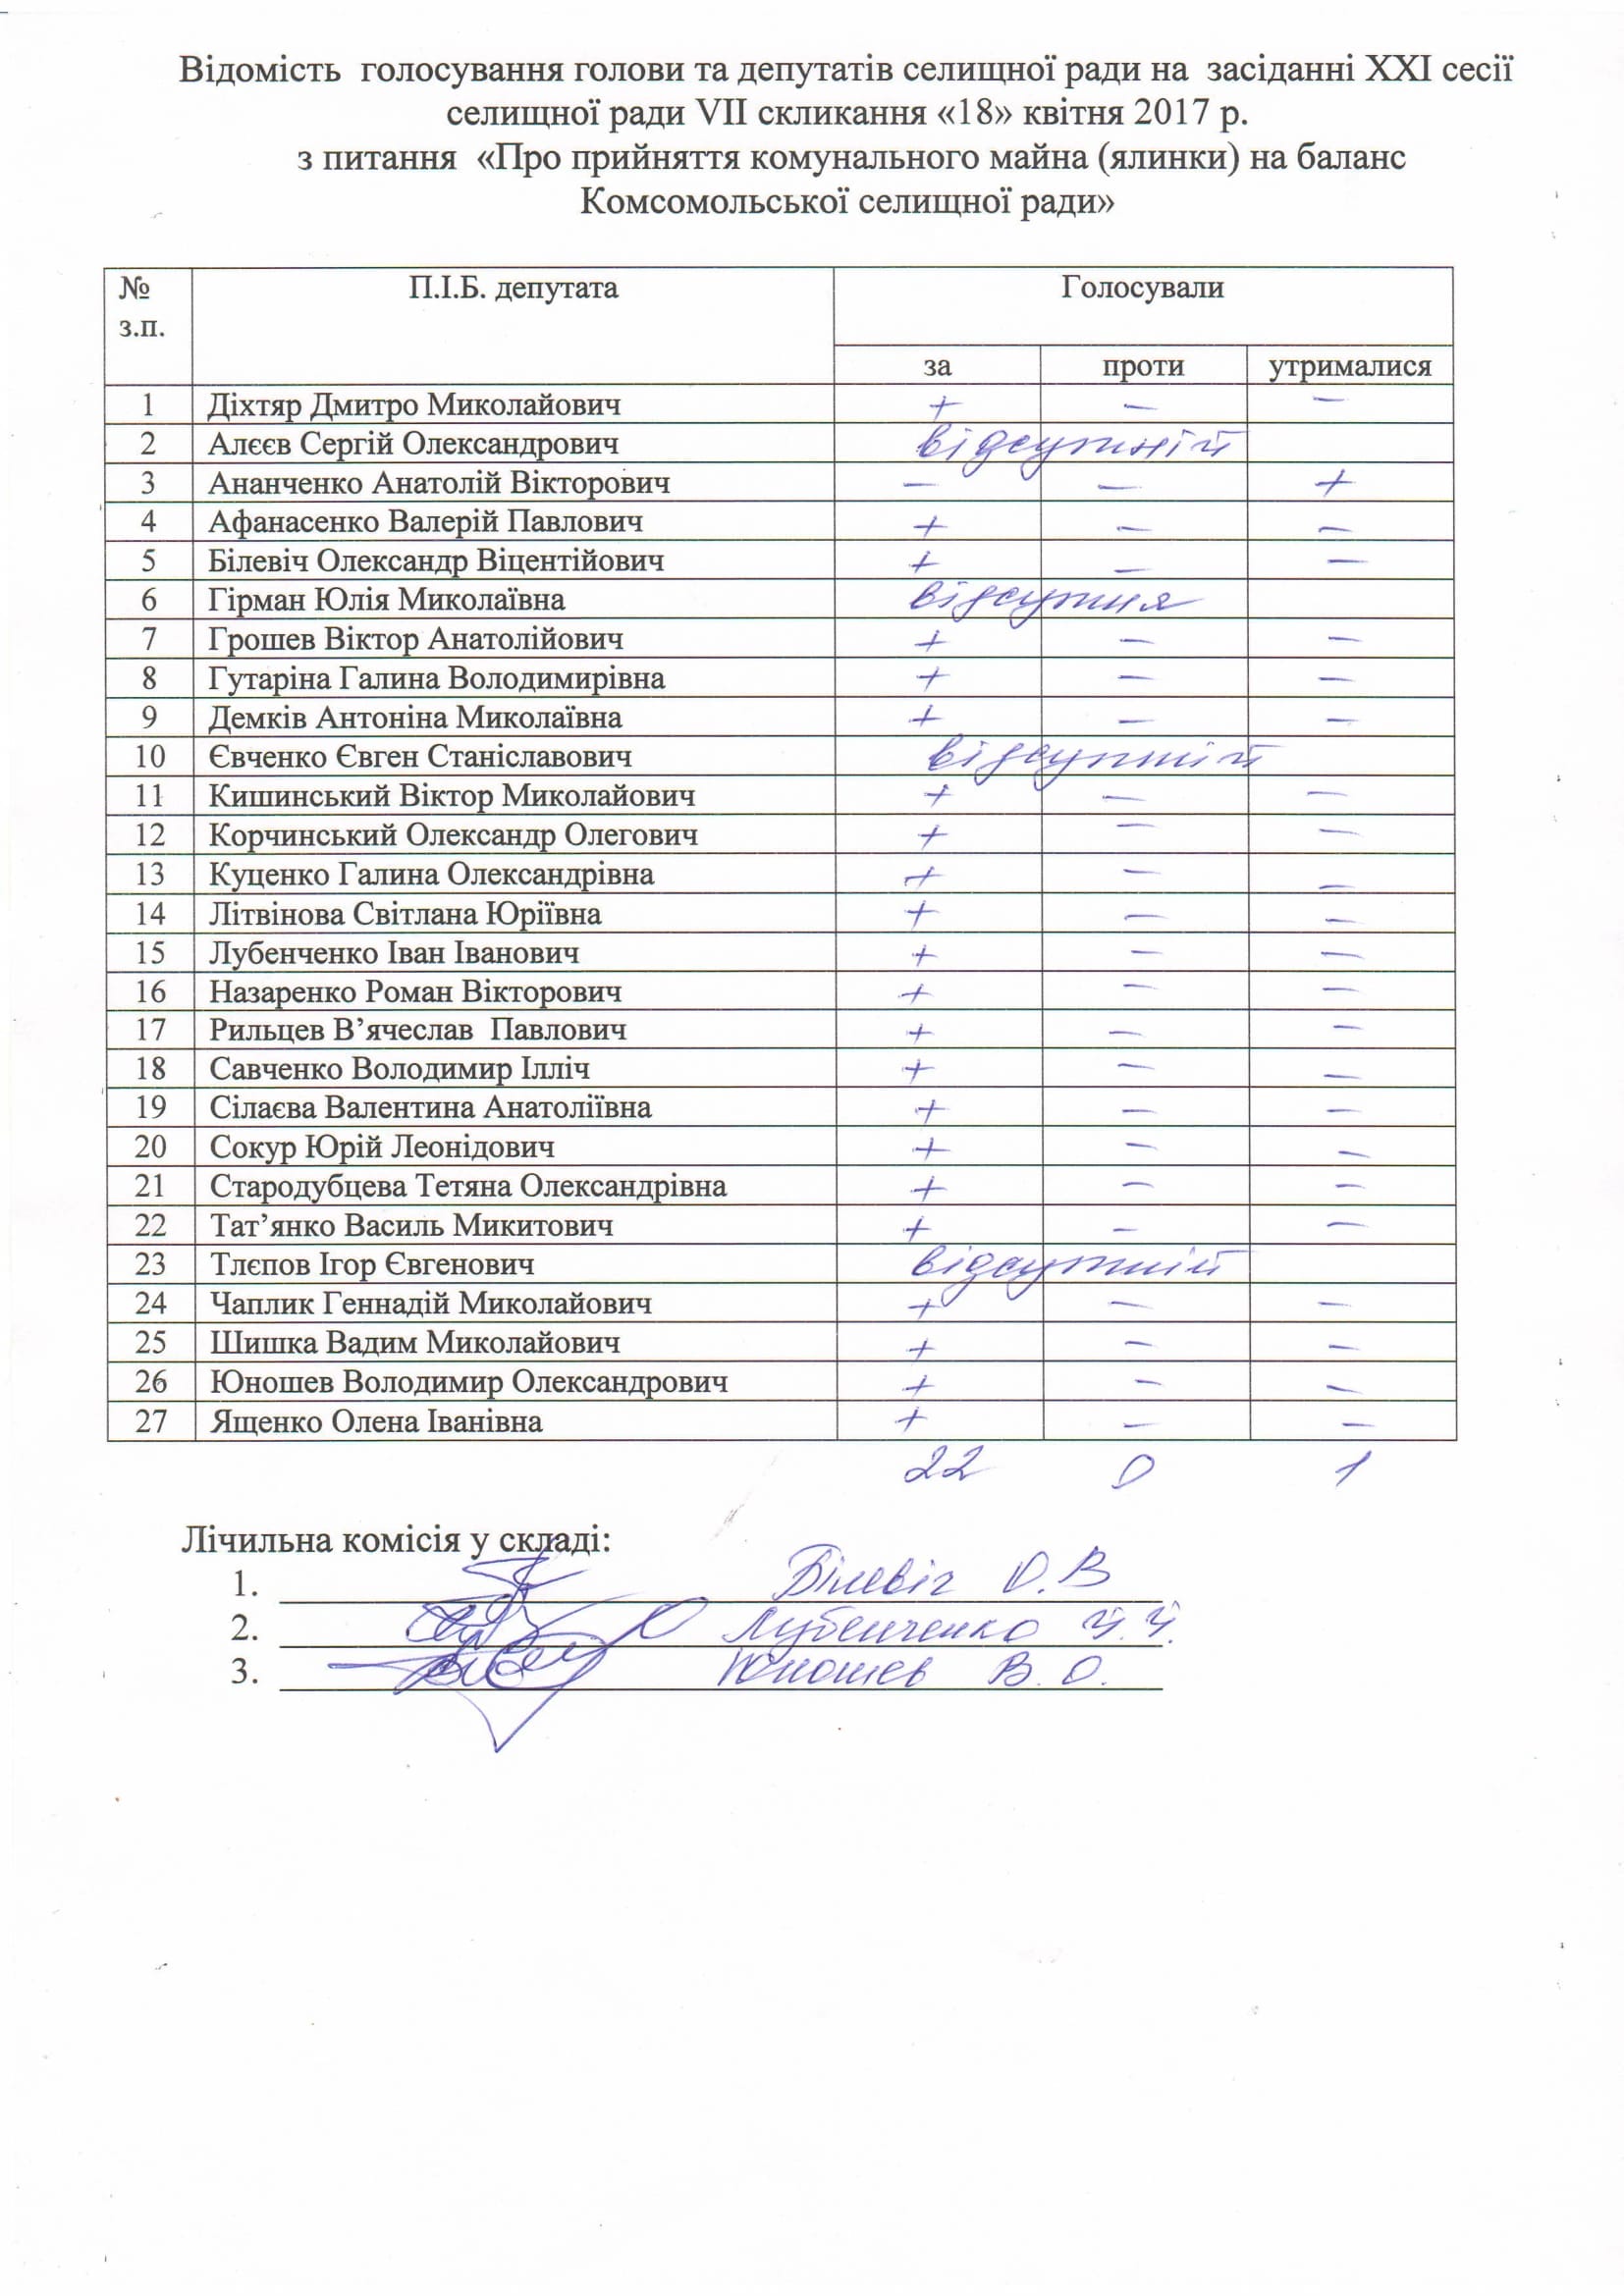 Відомість голосування голови та депутатів селищної ради на засіданні XXI сесії
селищної ради VII скликання «18» квітня 2017 р.
з питання «Про прийняття комунального майна (ялинки) на баланс
Комсомольської селищної ради»
№ П.І.Б. депутата Голосували
з.п.
за проти утрималися
1 Діхтяр Дмитро Миколайович + – –
2 Алєєв Сергій Олександрович відсутній
3 Ананченко Анатолій Вікторович – – +
4 Афанасенко Валерій Павлович + – –
5 Білевіч Олександр Віцентійович + – –
6 Гірман Юлія Миколаївна відсутня
7 Грошев Віктор Анатолійович + – –
8 Гутаріна Галина Володимирівна + – –
9 Демків Антоніна Миколаївна + – –
10 Євченко Євген Станіславович відсутній
11 Кишинський Віктор Миколайович + – –
12 Корчинський Олександр Олегович + – –
13 Куценко Галина Олександрівна + – –
14 Літвінова Світлана Юріївна + – –
15 Лубенченко Іван Іванович + – –
16 Назаренко Роман Вікторович + – –
17 Рильцев В’ячеслав Павлович + – –
18 Савченко Володимир Ілліч + – –
19 Сілаєва Валентина Анатоліївна + – –
20 Сокур Юрій Леонідович + – –
21 Стародубцева Тетяна Олександрівна + – –
22 Тат’янко Василь Микитович + – –
23 Тлєпов Ігор Євгенович відсутній
24 Чаплик Геннадій Миколайович + – –
25 Шишка Вадим Миколайович + – –
26 Юношев Володимир Олександрович + – –
27 Ященко Олена Іванівна + – –
22 0 1
Лічильна комісія у складі:
1. Білевіч О.В
2. Лубенченко І.І.
3. Юношев В.О.